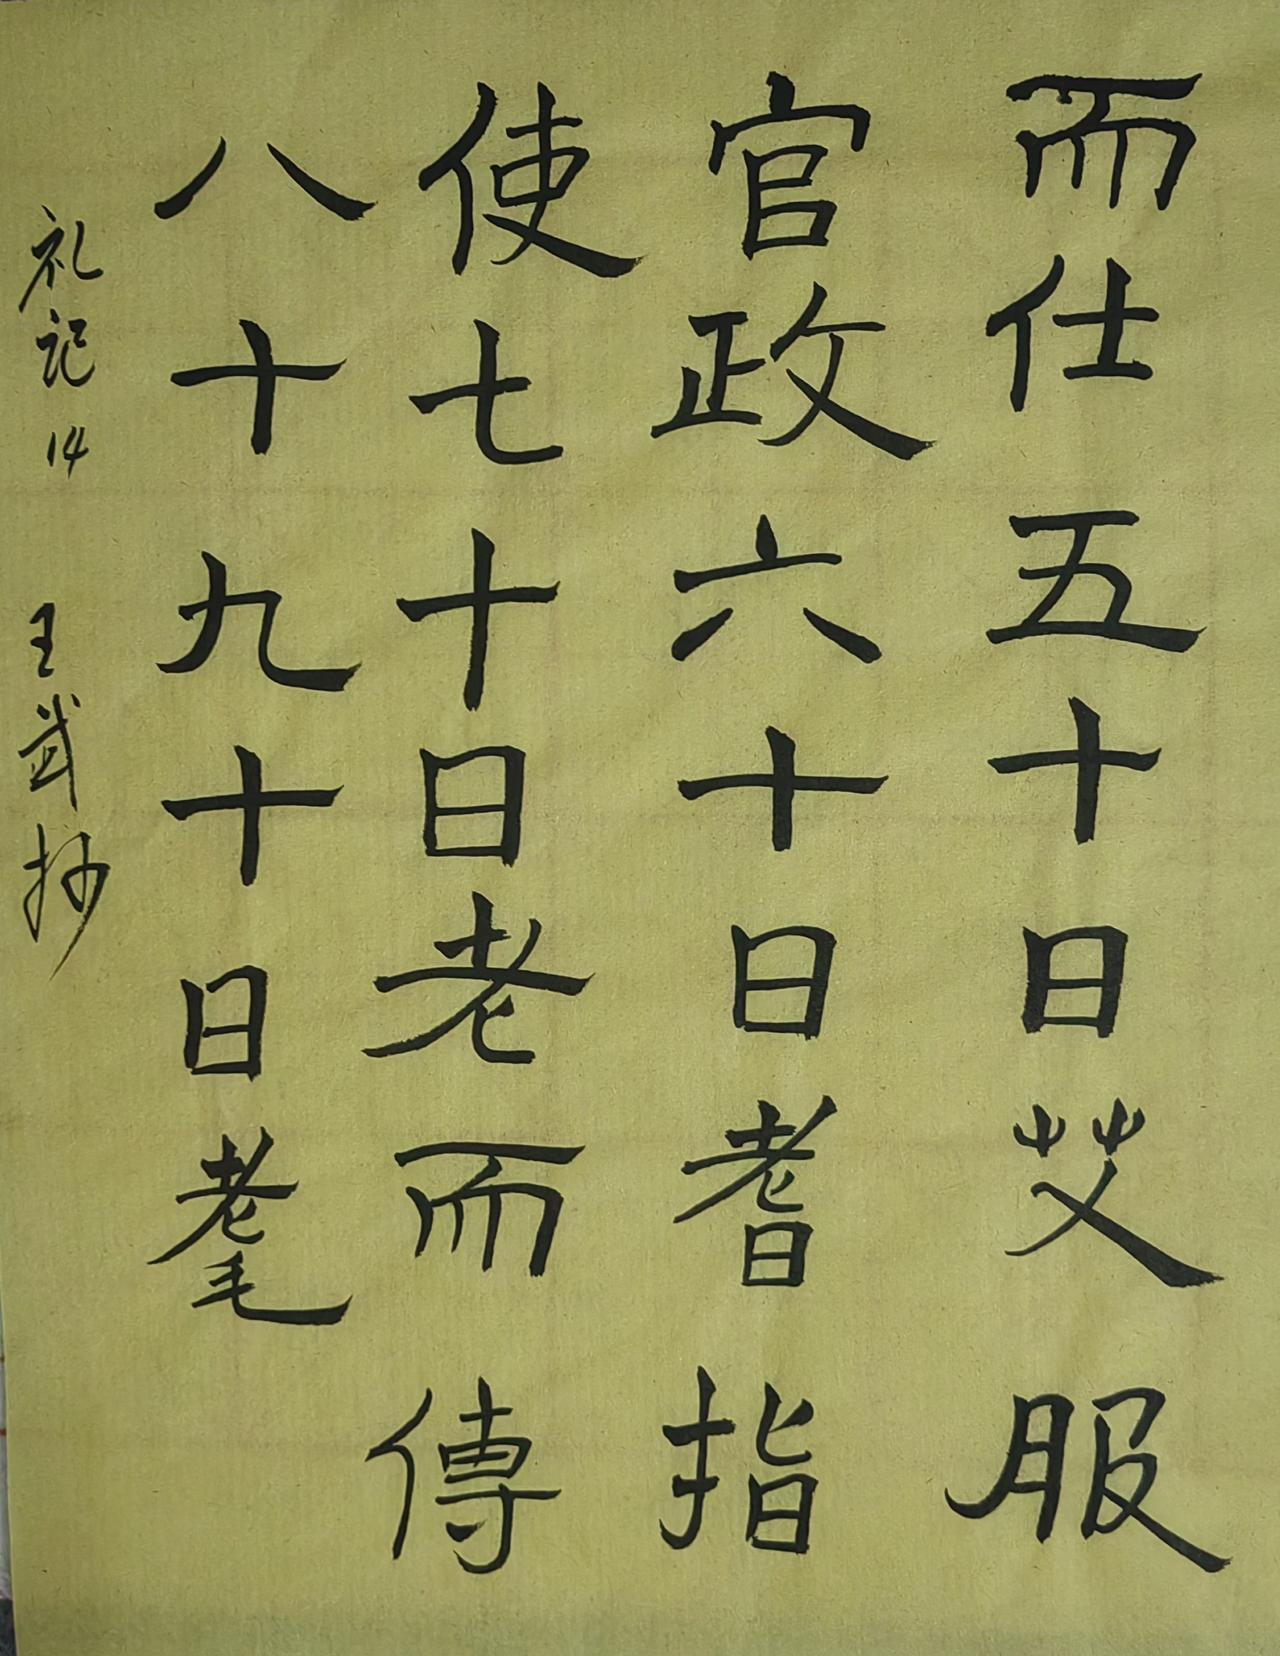 而仕五十曰艾服
官政六十曰耆指
使七十曰老而傳
八十九十曰耄
礼记14 王武抄